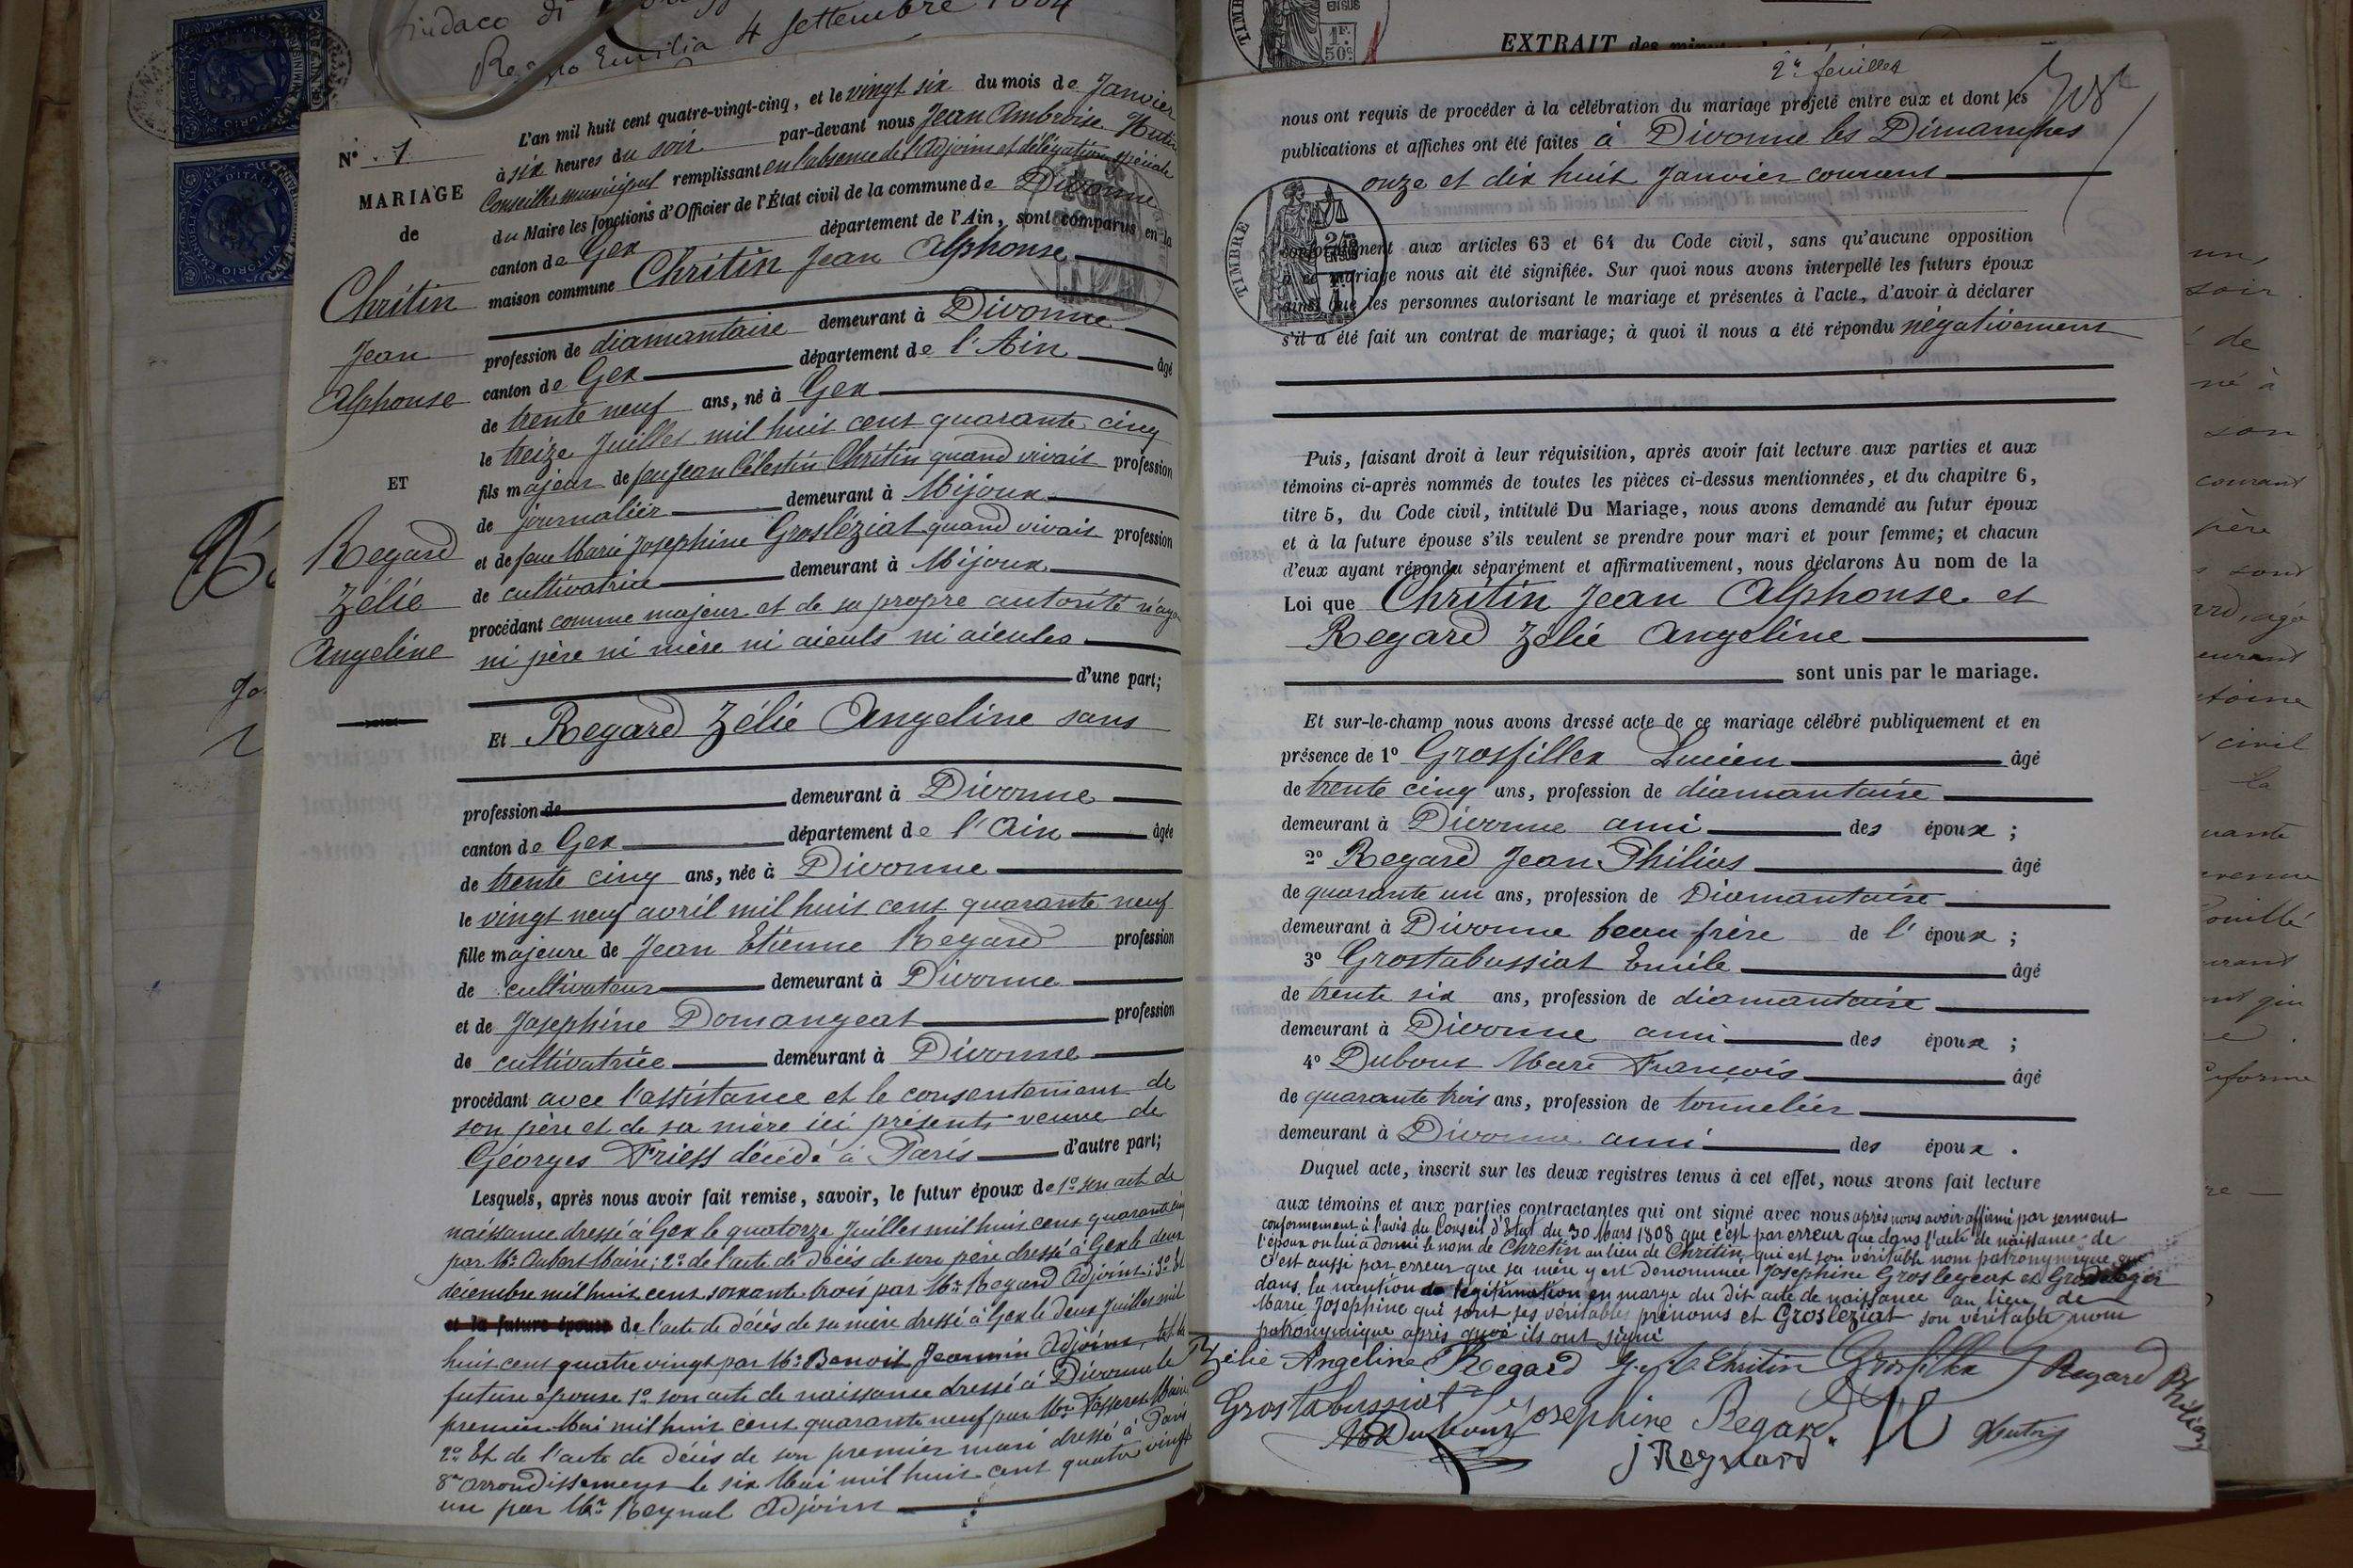 Sindaco di
Reggio Emilia 4 Settembre
N° 1
MARIAGE
de
Chritin
Jean
Alphonse
ET
Regard
Zélie
Angeline
L'an mil huit cent quatre-vingt-cinq, et le vingt six du mois de Janvier
à six heures du soir par-devant nous Jean Ambroise Hutin
Conseiller municipal remplissant en l'absence de l'Adjoint et délégation spéciale
du Maire les fonctions d'Officier de l'État civil de la commune de Divonne
canton de Gex département de l'Ain, sont comparus en la
maison commune Chritin Jean Alphonse
profession de diamantaire demeurant à Divonne
canton de Gex département de l'Ain âgé
de trente neuf ans, né à Gex
le treize Juillet mil huit cent quarante cinq
fils majeur de feu Jean Célestin Chritin quand vivait profession
de journalier demeurant à Mijoux
et de feue Marie Josephine Grosléziat quand vivait profession
de cultivatrice demeurant à Mijoux
procédant comme majeur et de sa propre autorité n'ayant
ni père ni mère ni aieuls ni aieules
d'une part;
Et Regard Zélie Angeline sans
profession de demeurant à Divonne
canton de Gex département de l'Ain âgée
de trente cinq ans, née à Divonne
le vingt neuf avril mil huit cent quarante neuf
fille majeure de Jean Etienne Regard profession
de cultivateur demeurant à Divonne
et de Josephine Domangeat profession
de cultivatrice demeurant à Divonne
procédant avec l'assistance et le consentement de
son père et de sa mère ici présents veuve de
Géorges Friess décédé à Paris d'autre part;
Lesquels, après nous avoir fait remise, savoir, le futur époux de 1° son acte de
naissance dressé à Gex le quatorze Juillet mil huit cent quarante cinq
par Mr Aubert Maire; 2° de l'acte de décès de son père dressé à Gex le deux
décembre mil huit cent soixante trois par Mr Regard Adjoint; 3° Et
et la future épouse de l'acte de décès de sa mère dressé à Gex le deux Juillet mil
huit cent quatre vingt par Mr Benoit Jeannin Adjoint, et la
future épouse 1° son acte de naissance dressé à Divonne le
premier Mai mil huit cent quarante neuf par Mr Maire
2° Et de l'acte de décès de son premier mari dressé à Paris
8e arrondissement le six Mai mil huit cent quatre vingt
un par Mr Reynal Adjoint
EXTRAIT des
2e feuillet
nous ont requis de procéder à la célébration du mariage projeté entre eux et dont les
publications et affiches ont été faites à Divonne les Dimanches
onze et dix huit Janvier courant
TIMBRE
conformément aux articles 63 et 64 du Code civil, sans qu'aucune opposition
à ce mariage nous ait été signifiée. Sur quoi nous avons interpellé les futurs époux
ainsi que les personnes autorisant le mariage et présentes à l'acte, d'avoir à déclarer
s'il a été fait un contrat de mariage; à quoi il nous a été répondu négativement
Puis, faisant droit à leur réquisition, après avoir fait lecture aux parties et aux
témoins ci-après nommés de toutes les pièces ci-dessus mentionnées, et du chapitre 6,
titre 5, du Code civil, intitulé Du Mariage, nous avons demandé au futur époux
et à la future épouse s'ils veulent se prendre pour mari et pour femme; et chacun
d'eux ayant répondu séparément et affirmativement, nous déclarons Au nom de la
Loi que Chritin Jean Alphonse et
Regard Zélie Angeline
sont unis par le mariage.
Et sur-le-champ nous avons dressé acte de ce mariage célébré publiquement et en
présence de 1° Grosfillex Lucien âgé
de trente cinq ans, profession de diamantaire
demeurant à Divonne ami des époux ;
2° Regard Jean Philias âgé
de quarante un ans, profession de Diamantaire
demeurant à Divonne beau frère de l'époux ;
3° Grostabussiat Emile âgé
de trente six ans, profession de diamantaire
demeurant à Divonne ami des époux ;
4° Dubout Marc François âgé
de quarante trois ans, profession de tonnelier
demeurant à Divonne ami des époux .
Duquel acte, inscrit sur les deux registres tenus à cet effet, nous avons fait lecture
aux témoins et aux parties contractantes qui ont signé avec nous après nous avoir affirmé par serment
conformement à l'avis du Conseil d'Etat du 30 Mars 1808 que c'est par erreur que dans l'acte de naissance de
l'époux on lui a donné le nom de Chretin au lieu de Chritin, qui est son véritable nom patronymique, que
c'est aussi par erreur que sa mère y est denommée JosephineИроslegeat et
dans la mention de légitimation en marge du dit acte de naissance au lieu de
Marie Josephine qui sont ses véritables prénoms et Grosléziat son véritable nom
patronymique après quoi ils ont signé
Zélie Angeline Regard Chritin Grosfillex Regard Philias
Grostabussiat Josephine Regard Hutin
Dubout J Regard